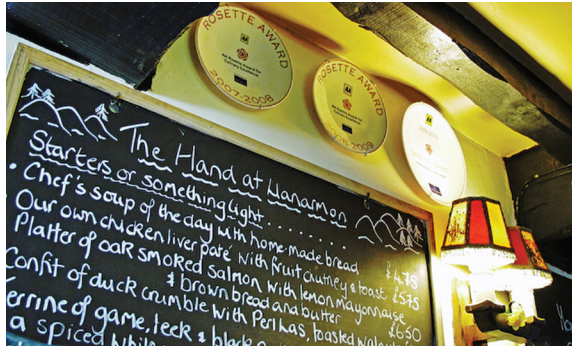 ROSETTE AWARD
AA
AA Rosette Award for
Culinary Excellence
2007-2008
ROSETTE AWARD
AA
2008-2009
AA
The Hand at Llanarmon
Starters or something light.........
• Chef's soup of the day with home-made bread £4.75
Our own chicken liver paté with fruit chutney & toast £5.75
Platter of oak smoked salmon with lemon mayonnaise
& brown bread and butter £6.50
Confit of duck crumble with Perl has, toasted
Terrine of game, leek & black
a spiced